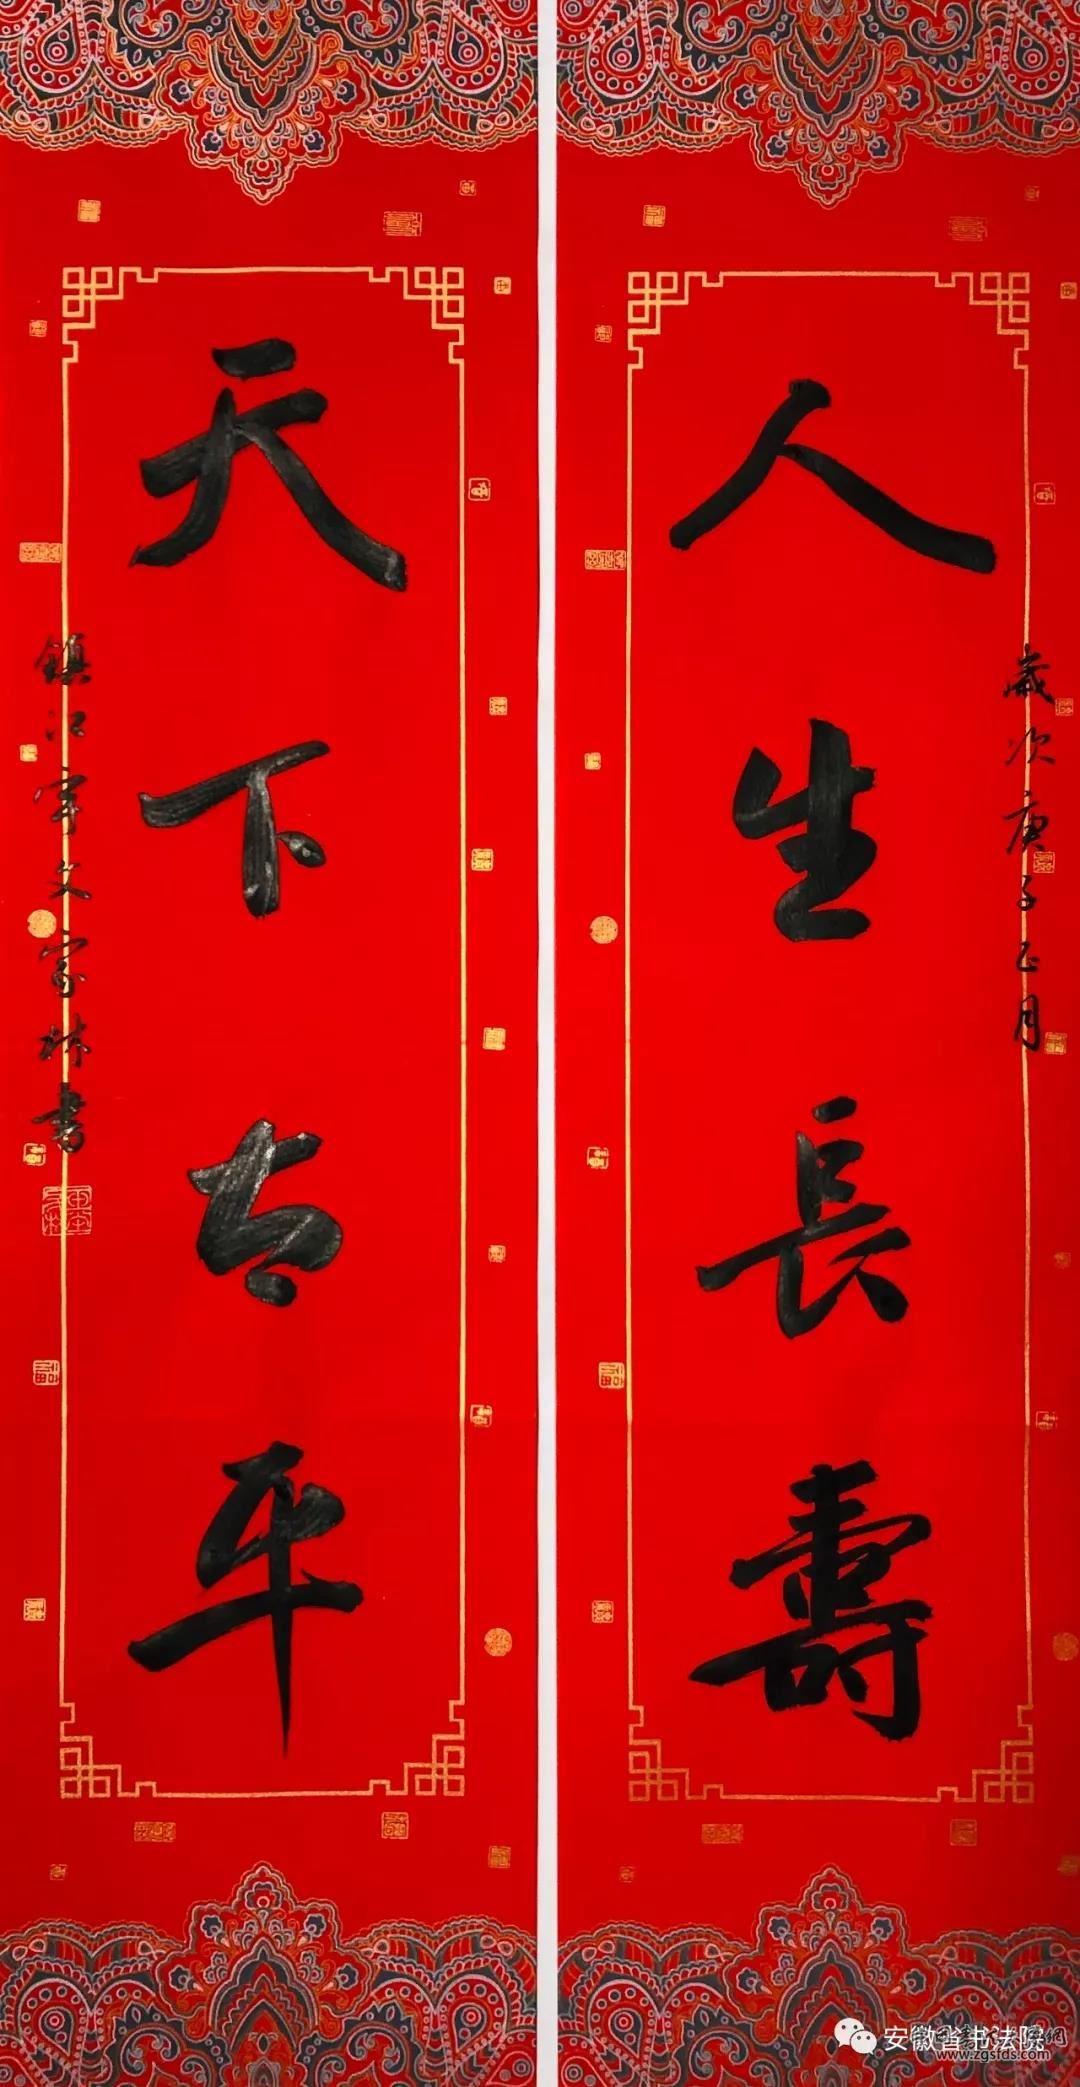 人生長壽
天下太平
歲次庚子正月
鎮江宇文家林書
安徽省书法院
www.zgsfds.com